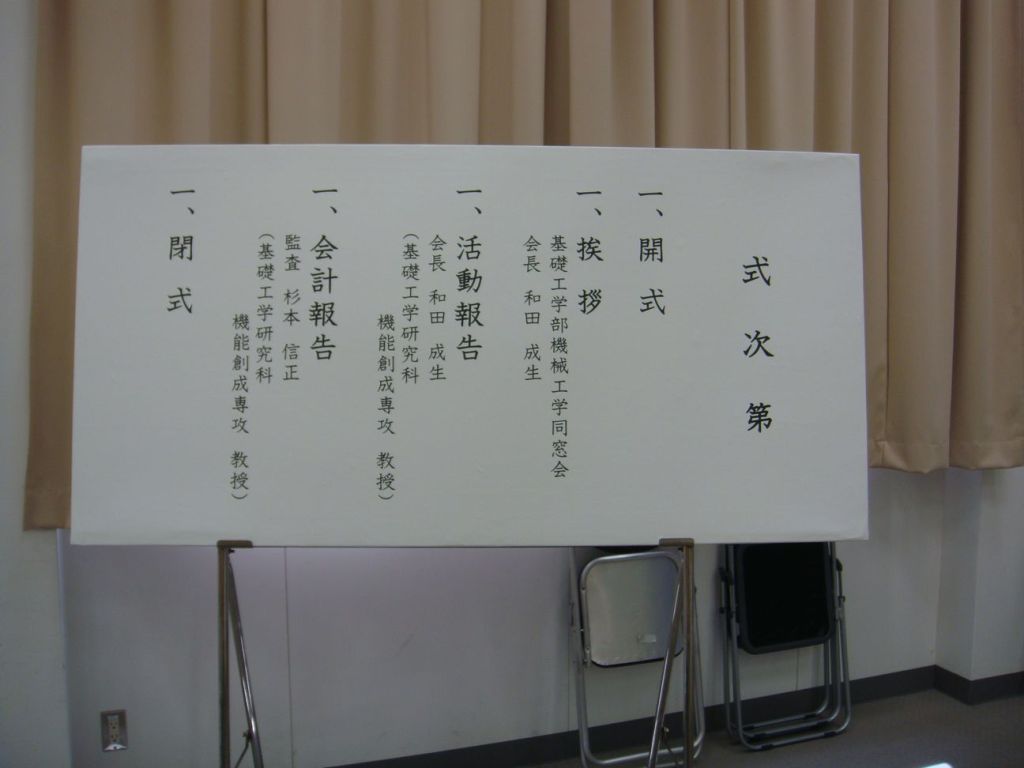 式次第
一、開式
一、挨拶
基礎工学部機械工学同窓会
会長 和田 成生
一、活動報告
会長 和田 成生
(基礎工学研究科
機能創成専攻 教授)
一、会計報告
監査 杉本 信正
(基礎工学研究科
機能創成専攻 教授)
一、閉式